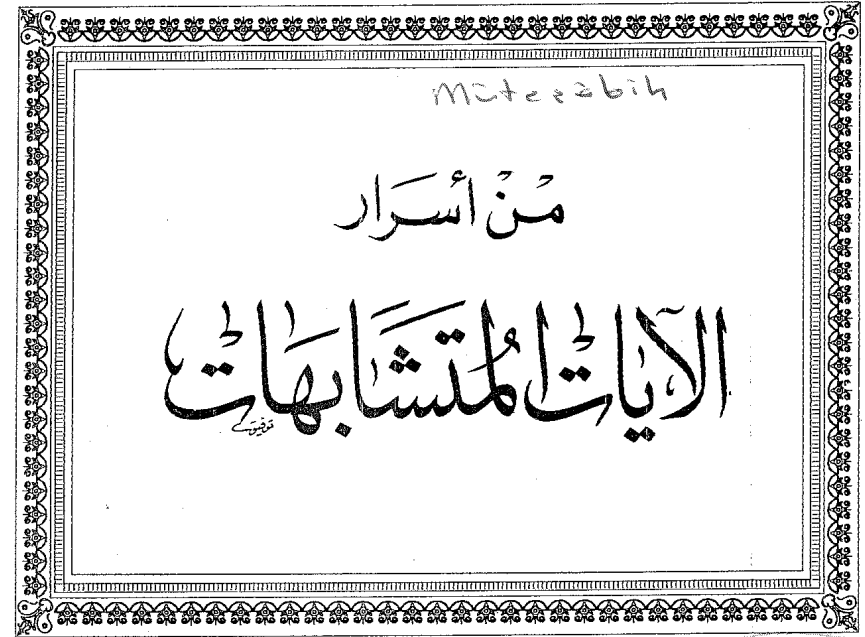 Müteşâbih
مِنْ أَسْرَار
الآيَاتِ الْمُتَشَابِهَاتِ